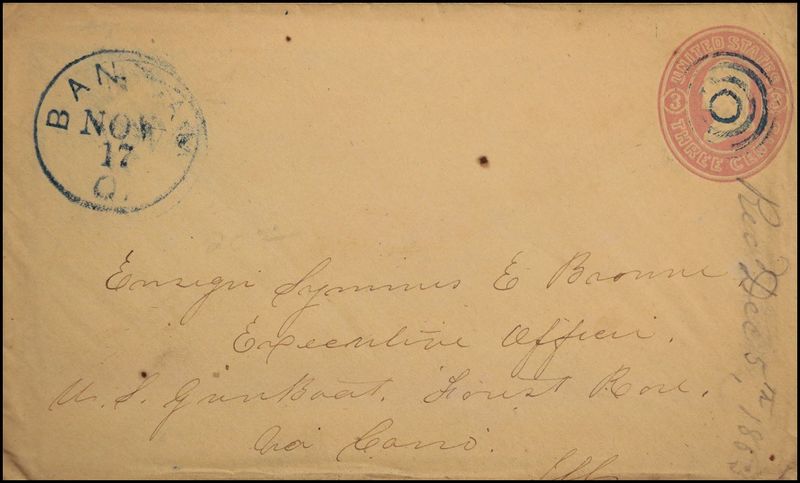 BANTAM
NOV
17
O.
UNITED STATES
3 3
THREE CENTS
Ensign Symmes E Browne
Executive Officer.
U. S. GunBoat. Forest Rose.
Via Cairo.
Ills
Rec'd Dec 5th, 1863